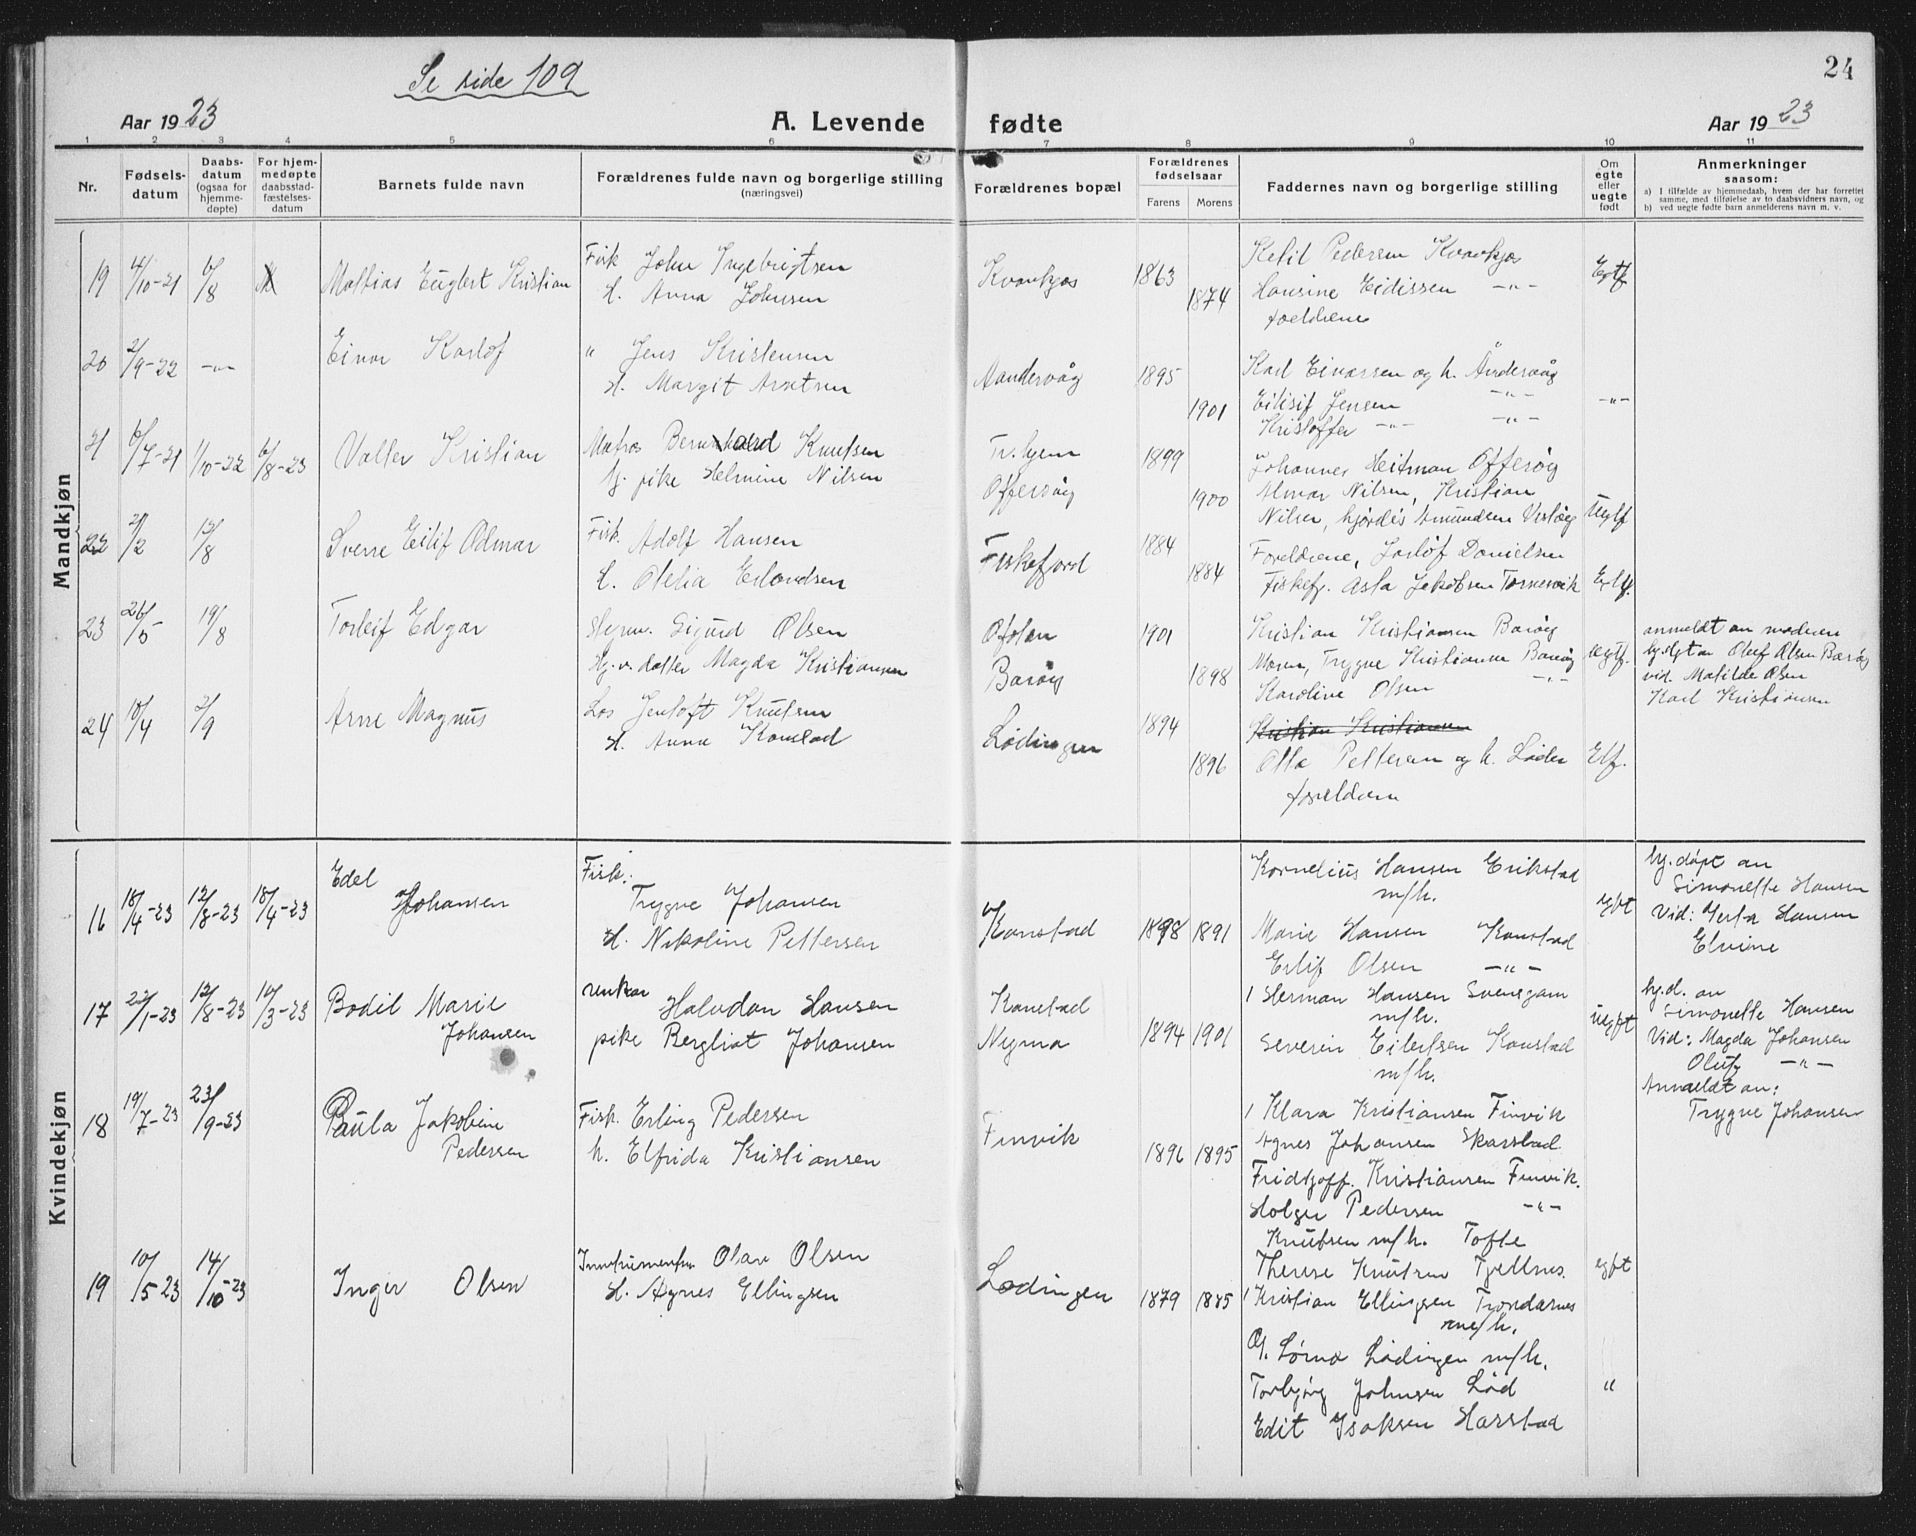 Se side 109
24
Aar 1923 A. Levende fødte Aar 1923
1 2 3 4 5 6 7 8 9 10 11
Nr.
Fødsels-
datum
Daabs-
datum
(ogsaa for
hjemme-
døpte)
For hjem-
medøpte
daabsstad-
fæstelses-
datum
Barnets fulde navn
Forældrenes fulde navn og borgerlige stilling
(næringsvei)
Forældrenes bopæl
Forældrenes
fødselsaar
Farens Morens
Faddernes navn og borgerlige stilling
Om
egte
eller
uegte
født
Anmerkninger
saasom:
a) I tilfælde av hjemmedaab, hvem der har forrettet
samme, med tilføielse av to daabsvidners navn, og
b) ved uegte fødte barn anmelderens navn m. v.
Mandkjøn
19 4/10-21 6/8 Mathias Englert Kristian
Fisk John Ingebrigtsen
H. Anna Johnsen
Kvankjos 1863 1874
Ketil Pedersen Kvankjos
Hansine Eidissen -"-
foeldrene
Egtf
20 2/9-22 -"- Einar Karlof
" Jens Kristensen
H. Margit Arntsen
Aandervåg 1895 1901
Karl Einarsen og h. Åndervåg
Eilisif Jensen -"-
Kristoffer -"- -"-
-"-
21 6/7-21 1/10-22 6/8-23 Valter Kristian
Matros Bernhard Knutsen
pike Helmine Nilsen
Tr.hjem
Offersøy 1899 1900
Johannes Heitman Offersøy
Almar Nilsen, Kristian
Nilsen, hjørdis Amundsen
Uegtf
22 2/2 12/8 Sverre Eilif Odmar
Fisk. Adolf Hansen
H. Otelia Erlandsen
Fiskefjord 1884 1884
Foreldrene, Jarlof Danielsen
Fiskef. Asta Jekobsen Tornesvik
Egtf.
23 26/5 19/8 Torleif Edgar
Styrm. Sigurd Olsen
datter Magda Kristiansen
Ofoten
Barøy 1901 1898
Kristian Kristiansen Barøy
Moren, Trygve Kristiansen Barøy
Karoline Olsen -"-
uegtf.
anmeldt av moderen
Oluf Olsen Barøy
vid. Matilde Olsen
Karl Kristiansen
24 10/4 2/9 Arne Magnus
Los Jentoft Knutsen
H. Anna Kanstad
Lødingen 1894 1896
Kristian Kristiansen
Otto Pettersen og h. Løden
foreldrene
Etf.
Kvindekjøn
16 18/4-23 12/8-23 18/4-23 Edel
Johansen
Fisk.
Trygve Johansen
H. Nikoline Pettersen
Kanstad 1898 1891
Kornelius Hansen Erikstad
m/h.
Marie Hansen Kanstad
Erlif Olsen -"-
egft
hj.døpt av
Simonette Hansen
Vid: Herta Hansen
Elvine
17 22/1-23 12/8-23 10/3-23 Bodil Marie
Johansen
Halvdan Hansen
pike Bergliot Johansen
Kanstad
Nyma 1894 1901
1 Herman Hansen Svensgam
m/h.
Severin Eilertsen Kanstad
m/h.
uegft
hj.d. av
Simonette Hansen
Vid: Magda Johansen
Oluf -"-
Anmeldt av:
Trygve Johansen
18 19/7-23 23/9-23 Paula Jakobine
Pedersen
Fisk. Erling Pedersen
h. Elfrida Kristiansen
Finvik 1896 1895
1 Klara Kristiansen Finvik
Agnes Johansen Skarstad
Fridtjoff. Kristiansen Finvik.
Holger Pedersen -"-
Knutsen m/h. Tofte
Therese Knutsen Tjellnes.
egft
19 10/5-23 14/10-23 Inger Olsen
Olav Olsen
H. Agnes Ellingsen
Lødingen 1879 1885
1 Kristian Ellingsen Trondarnes
m/h.
O. Lørno Lødingen m/h.
Torbjørg Johnsen Lød
Edit Isaksen Harstad
"